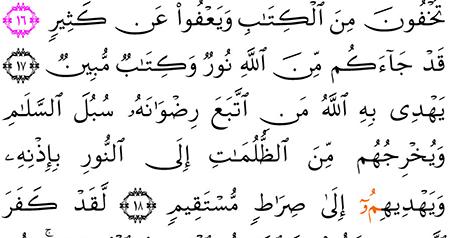 تُخْفُونَ مِنَ ٱلْكِتَٰبِ وَيَعْفُواْ عَن كَثِيرٍ ۝١٦
قَدْ جَآءَكُم مِّنَ ٱللَّهِ نُورٌ وَكِتَٰبٌ مُّبِينٌ ۝١٧
يَهْدِى بِهِ ٱللَّهُ مَنِ ٱتَّبَعَ رِضْوَٰنَهُۥ سُبُلَ ٱلسَّلَٰمِ
وَيُخْرِجُهُم مِّنَ ٱلظُّلُمَٰتِ إِلَى ٱلنُّورِ بِإِذْنِهِۦ
وَيَهْدِيهِمُۥٓ إِلَىٰ صِرَٰطٍ مُّسْتَقِيمٍ ۝١٨ لَّقَدْ كَفَرَ